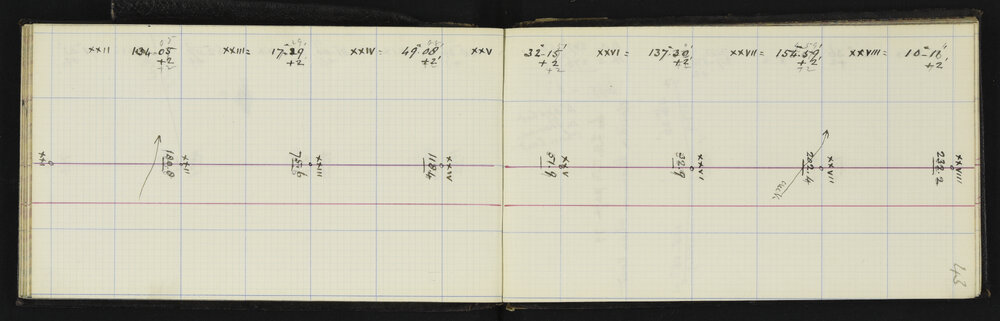 xxII 134-05
+2
xxIII = 17-29
+2
xxIV = 49-08'
+2'
xxV 32-15'
+2
xxVI = 137-30'
+2'
xxVII = 154-59'
+2
xxVIII = 10-18'
+2'
xxI
xxII
180.8
xxIII
75.6
xxIV
118.4
xxV
51.9
xxVI
32.9
xxVII
202.4
xxVIII
232.2
43